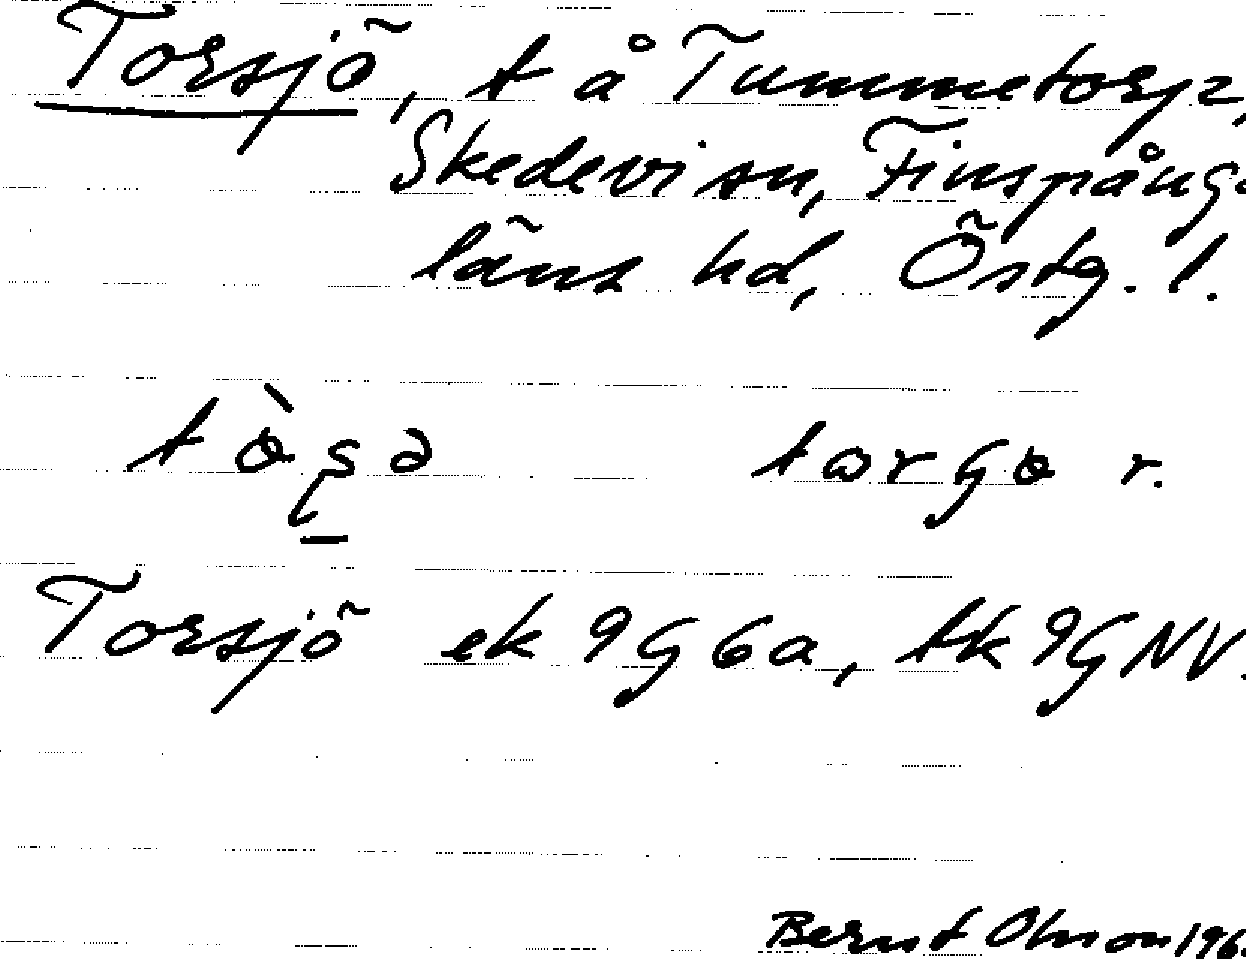 Torsjö, t å Tummetorp,
Skedevi sn, Finspånga
läns hd, Östg. l.
Torsjö ek 9G6a, tk 9GNV.
Bernt Olsson 196